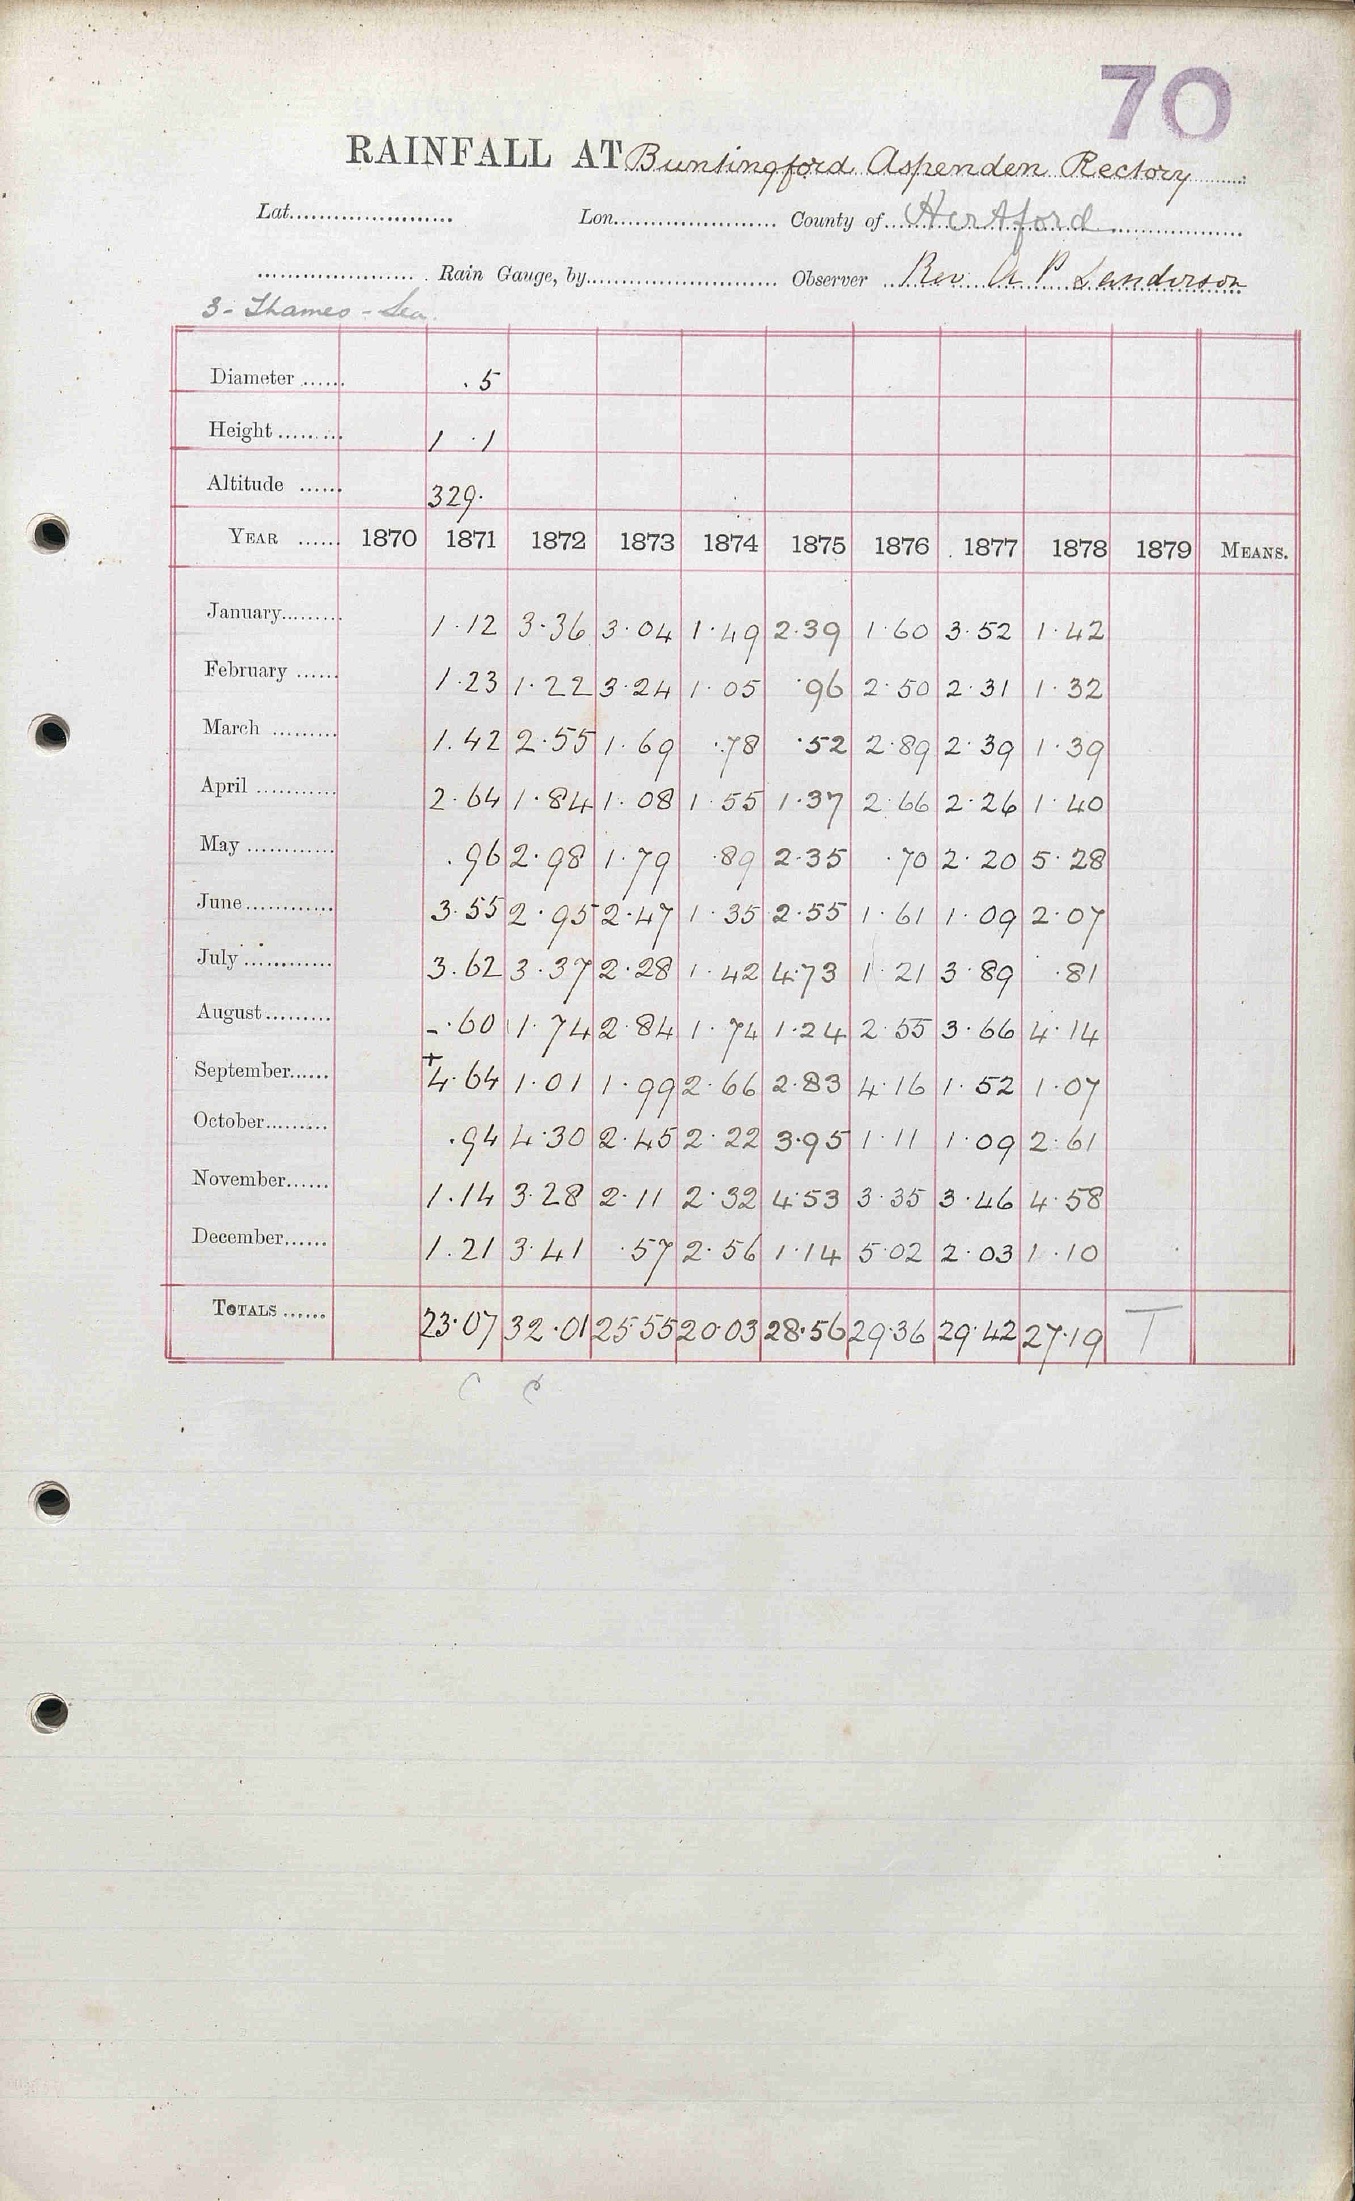 70
RAINFALL AT Buntingford Aspenden Rectory
Lat. Lon. County of Hertford
Rain Gauge, by Observer Rev. A P Sanderson
3 - Thames - Lea.
Diameter ...... .5
Height ......... 1 .1
Altitude ...... 329.
YEAR ...... 1870 1871 1872 1873 1874 1875 1876 1877 1878 1879 MEANS.
January......... 1.12 3.36 3.04 1.49 2.39 1.60 3.52 1.42
February ...... 1.23 1.22 3.24 1.05 .96 2.50 2.31 1.32
March ......... 1.42 2.55 1.69 .78 .52 2.89 2.39 1.39
April ............ 2.64 1.84 1.08 1.55 1.37 2.66 2.26 1.40
May ............ .96 2.98 1.79 .89 2.35 .70 2.20 5.28
June ............ 3.55 2.95 2.47 1.35 2.55 1.61 1.09 2.07
July ............ 3.62 3.37 2.28 1.42 4.73 1.21 3.89 .81
August ......... - .60 1.74 2.84 1.74 1.24 2.55 3.66 4.14
September...... + 4.64 1.01 1.99 2.66 2.83 4.16 1.52 1.07
October......... .94 4.30 2.45 2.22 3.95 1.11 1.09 2.61
November...... 1.14 3.28 2.11 2.32 4.53 3.35 3.46 4.58
December...... 1.21 3.41 .57 2.56 1.14 5.02 2.03 1.10
TOTALS ...... 23.07 32.01 25.55 20.03 28.56 29.36 29.42 27.19 T